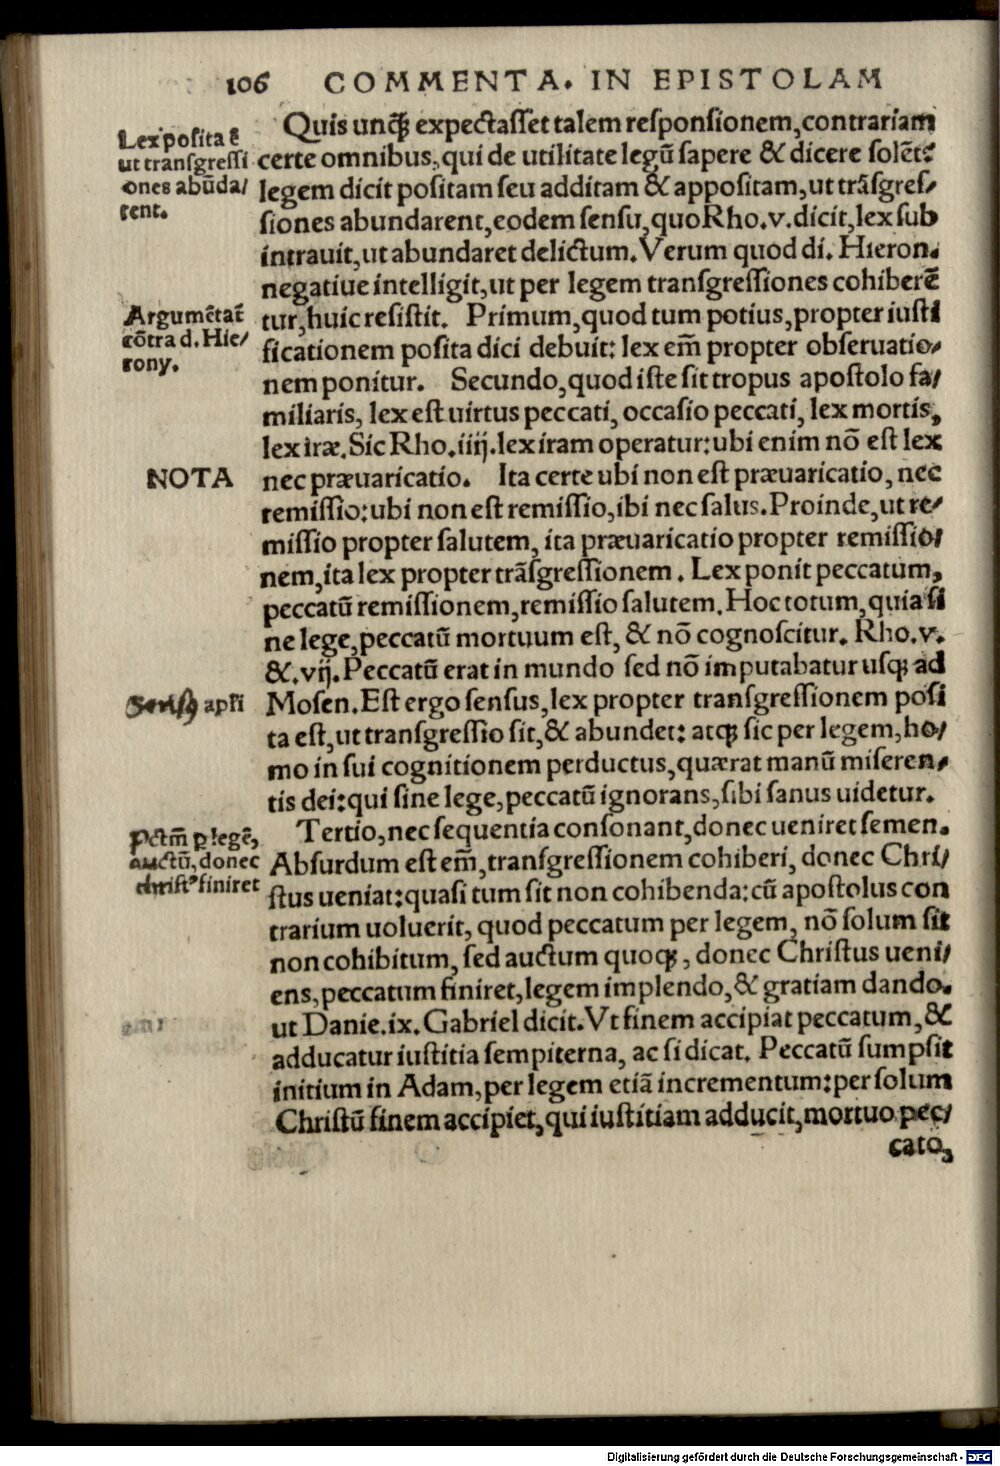 106 COMMENTA. IN EPISTOLAM
Quis unꝗ̄ expectaſſet talem reſponſionem, contrariam
certe omnibus, qui de utilitate legū ſapere & dicere ſolēt:
legem dicit poſitam ſeu additam & appoſitam, ut trāſgreſ⸗
ſiones abundarent, eodem ſenſu, quo Rho. v. dicit, lex ſub
intrauit, ut abundaret delictum. Verum quod di. Hieron.
negatiue intelligit, ut per legem tranſgreſſiones cohiberē
tur, huic reſiſtit. Primum, quod tum potius, propter iuſti
ficationem poſita dici debuit: lex em̄ propter obſeruatio⸗
nem ponitur. Secundo, quod iſte ſit tropus apoſtolo fa⸗
miliaris, lex eſt uirtus peccati, occaſio peccati, lex mortis,
lex iræ. Sic Rho. iiij. lex iram operatur: ubi enim nō eſt lex
nec præuaricatio. Ita certe ubi non eſt præuaricatio, nec
remiſſio: ubi non eſt remiſſio, ibi nec ſalus. Proinde, ut re⸗
miſſio propter ſalutem, ita præuaricatio propter remiſſio⸗
nem, ita lex propter trāſgreſſionem. Lex ponit peccatum,
peccatū remiſſionem, remiſſio ſalutem. Hoc totum, quia ſi
ne lege, peccatū mortuum eſt, & nō cognoſcitur. Rho. v.
&. vij. Peccatū erat in mundo ſed nō imputabatur uſqꝫ ad
Moſen. Eſt ergo ſenſus, lex propter tranſgreſſionem poſi
ta eſt, ut tranſgreſſio ſit, & abundet: atqꝫ ſic per legem, ho⸗
mo in ſui cognitionem perductus, quærat manū miſeren⸗
tis dei: qui ſine lege, peccatū ignorans, ſibi ſanus uidetur.
Tertio, nec ſequentia conſonant, donec ueniret ſemen.
Abſurdum eſt em̄, tranſgreſſionem cohiberi, donec Chri⸗
ſtus ueniat: quaſi tum ſit non cohibenda: cū apoſtolus con
trarium uoluerit, quod peccatum per legem, nō ſolum ſit
non cohibitum, ſed auctum quoqꝫ, donec Chriſtus ueni⸗
ens, peccatum finiret, legem implendo, & gratiam dando.
ut Danie. ix. Gabriel dicit. Vt finem accipiat peccatum, &
adducatur iuſtitia ſempiterna, ac ſi dicat. Peccatū ſumpſit
initium in Adam, per legem etiā incrementum: per ſolum
Chriſtū finem accipiet, qui iuſtitiam adducit, mortuo pec⸗
cato,
Lex poſita ē
ut tranſgreſſi
ones abūda⸗
rent.
Argumētat̄
cōtra d. Hie⸗
rony.
NOTA
Senſꝰ apłi
Pctm̄ ꝑ legē,
auctū, donec
chriſtꝰ finiret
Digitalisierung gefördert durch die Deutsche Forschungsgemeinschaft · DFG